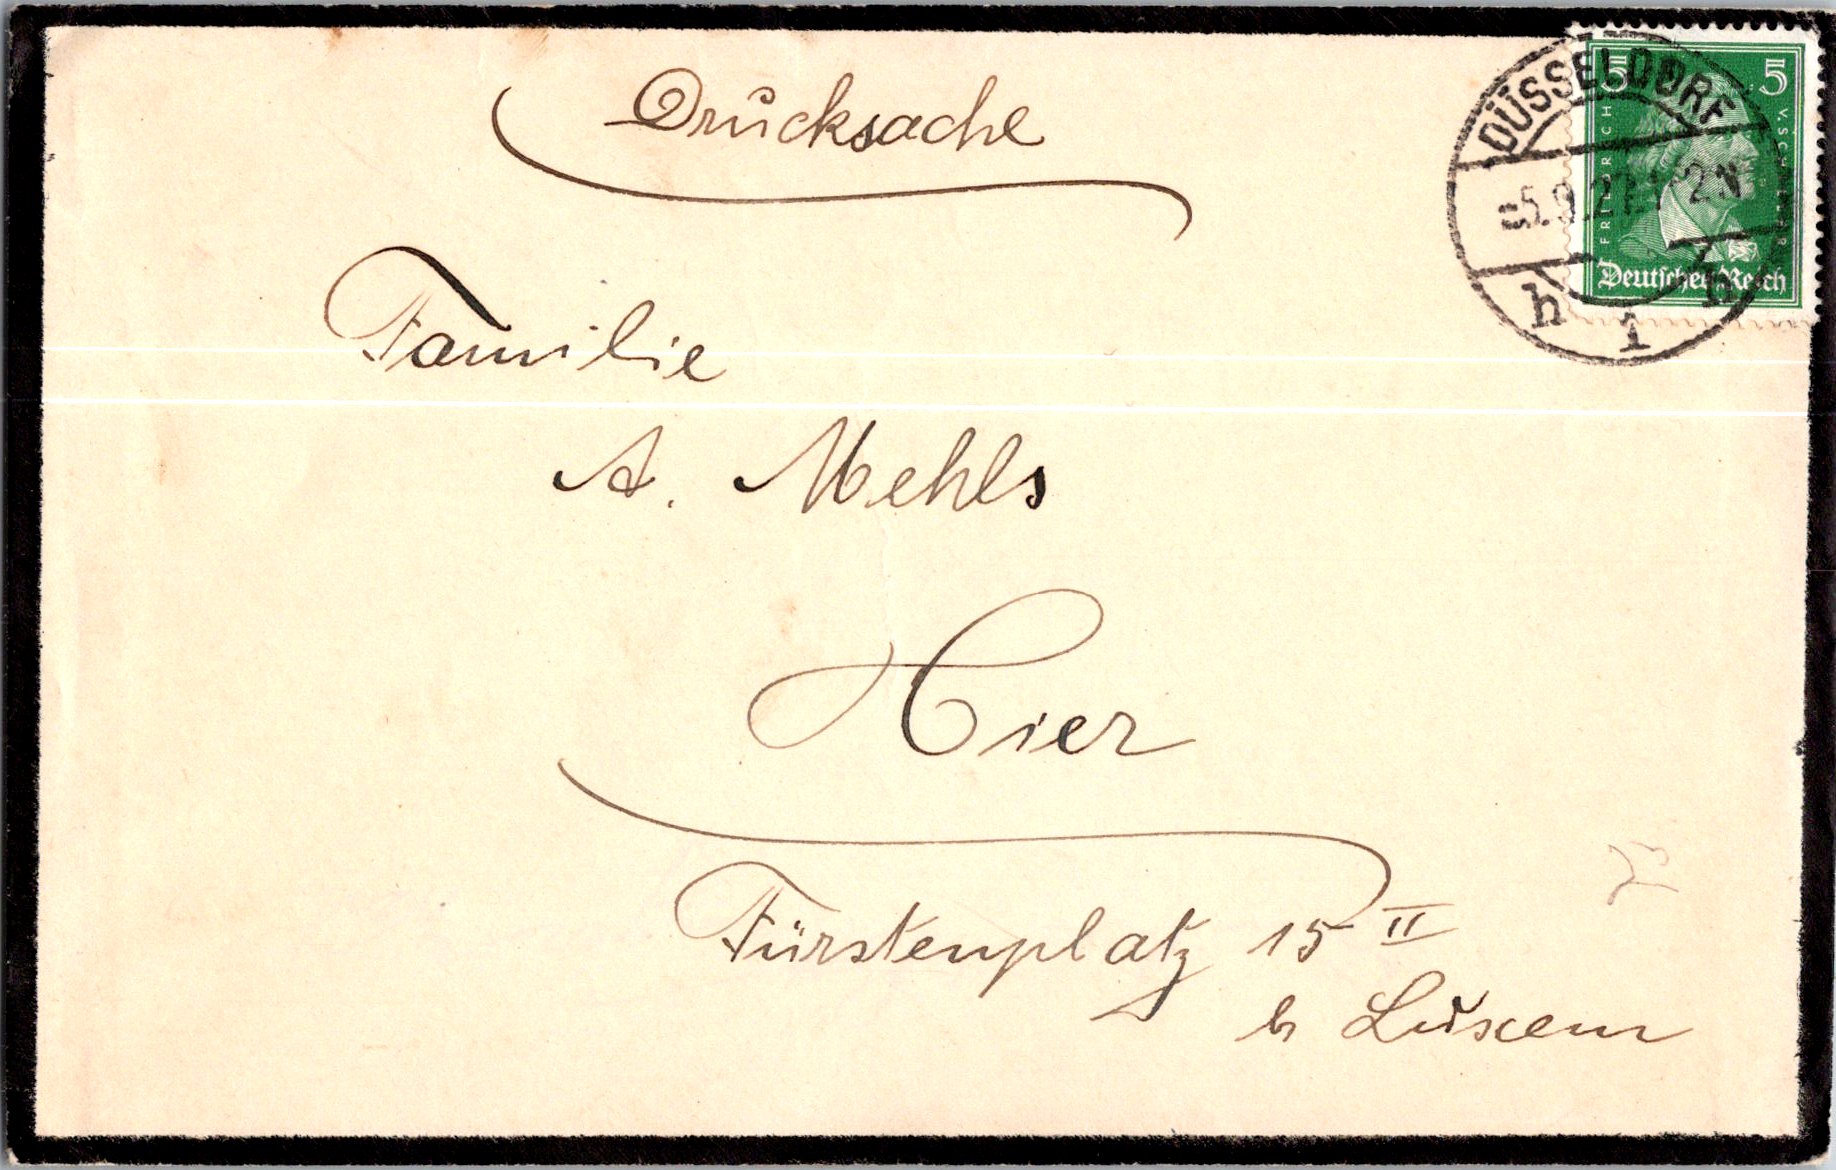 Drucksache
Familie
A. Mehls
Hier
Fürstenplatz 15 II
b Luxem
DÜSSELDORF
5.9.27. 1-2 N
h 1 h
5 5
FRIEDRICH V. SCHILLER
Deutsches Reich